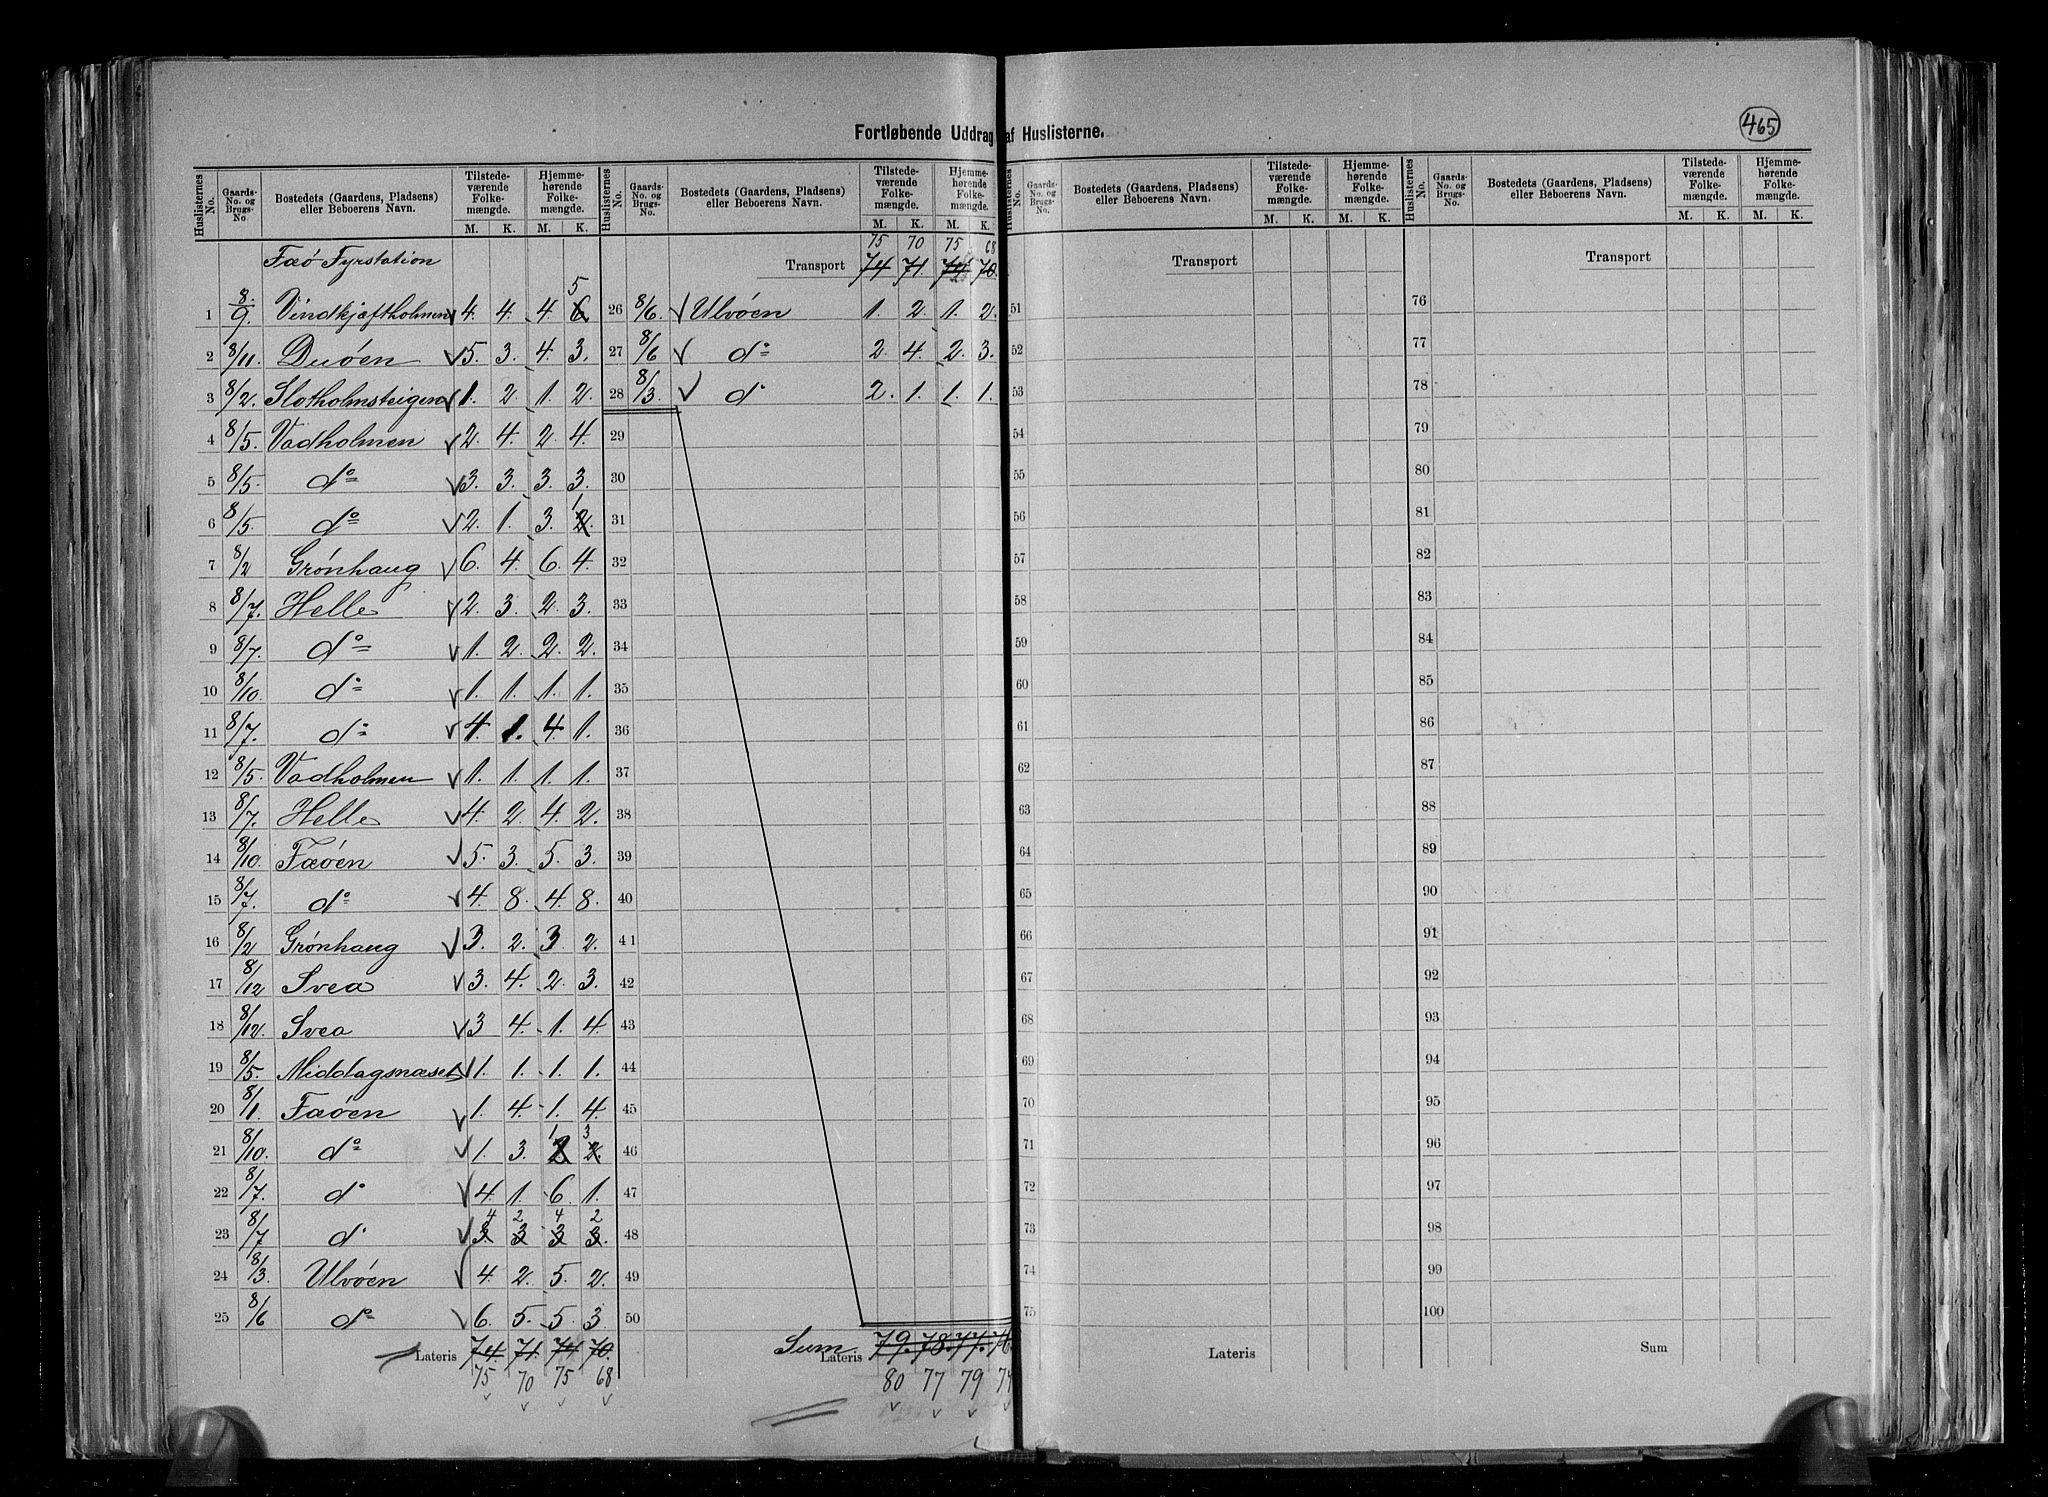 Fortløbende Uddrag af Huslisterne.
465
Huslisternes No. | Gaards-No. og Brugs-No. | Bostedets (Gaardens, Pladsens) eller Beboerens Navn. | Tilstedeværende Folkemængde. M. K. | Hjemmehørende Folkemængde. M. K.
Fæø Fyrstation
1 8/9. Vindkjæftholmen 4. 4. 4. 6 5
2 8/11. Duøen 5. 3. 4. 3.
3 8/2. Slotholmsteigen 1. 2. 1. 2.
4 8/5. Vadholmen 2. 4. 2. 4.
5 8/5. do 3. 3. 3. 3.
6 8/5. do 2. 1. 3. 2. 1
7 8/2 Grønhaug 6. 4. 6. 4.
8 8/7. Helle 2. 3. 2. 3.
9 8/7. do 1. 2. 2. 2.
10 8/10. do 1. 1. 1. 1.
11 8/7. do 4. 1. 4. 1.
12 8/5. Vadholmen 1. 1. 1. 1.
13 8/7. Helle 4. 2. 4. 2.
14 8/10. Fæøen 5. 3. 5. 3.
15 8/7. do 4. 8. 4. 8.
16 8/2 Grønhaug 3. 2. 3. 2.
17 8/12 Svea 3. 4. 2. 3.
18 8/12. Svea 3 4. 1. 4.
19 8/5. Middagsnæset 1. 1. 1. 1.
20 8/1. Fæøen 1. 4. 1. 4.
21 8/10. do 1. 3. 2 1 2. 3
22 8/7. do 4. 1. 6. 1.
23 8/7 do 3. 4 3 2 3 4 3. 2
24 8/3. Ulvøen 4. 2. 5. 2.
25 8/6 do 6. 5. 5. 3
Lateris 74. 71. 74 70.
75 70 75 68
Huslisternes No. | Gaards-No. og Brugs-No. | Bostedets (Gaardens, Pladsens) eller Beboerens Navn. | Tilstedeværende Folkemængde. M. K. | Hjemmehørende Folkemængde. M. K.
75 70 75 68
Transport 74 71. 74 70.
26 8/6. Ulvøen 1. 2. 1. 2.
27 8/6 do 2. 4. 2. 3.
28 8/3. do 2. 1. 1. 1.
29
30
31
32
33
34
35
36
37
38
39
40
41
42
43
44
45
46
47
48
49
50
Sum. Lateris 79. 78. 77.
80 77 79
Huslisternes No. | Gaards-No. og Brugs-No. | Bostedets (Gaardens, Pladsens) eller Beboerens Navn. | Tilstedeværende Folkemængde. M. K. | Hjemmehørende Folkemængde. M. K.
Transport
51
52
53
54
55
56
57
58
59
60
61
62
63
64
65
66
67
68
69
70
71
72
73
74
75
Lateris
Huslisternes No. | Gaards-No. og Brugs-No. | Bostedets (Gaardens, Pladsens) eller Beboerens Navn. | Tilstedeværende Folkemængde. M. K. | Hjemmehørende Folkemængde. M. K.
Transport
76
77
78
79
80
81
82
83
84
85
86
87
88
89
90
91
92
93
94
95
96
97
98
99
100
Sum